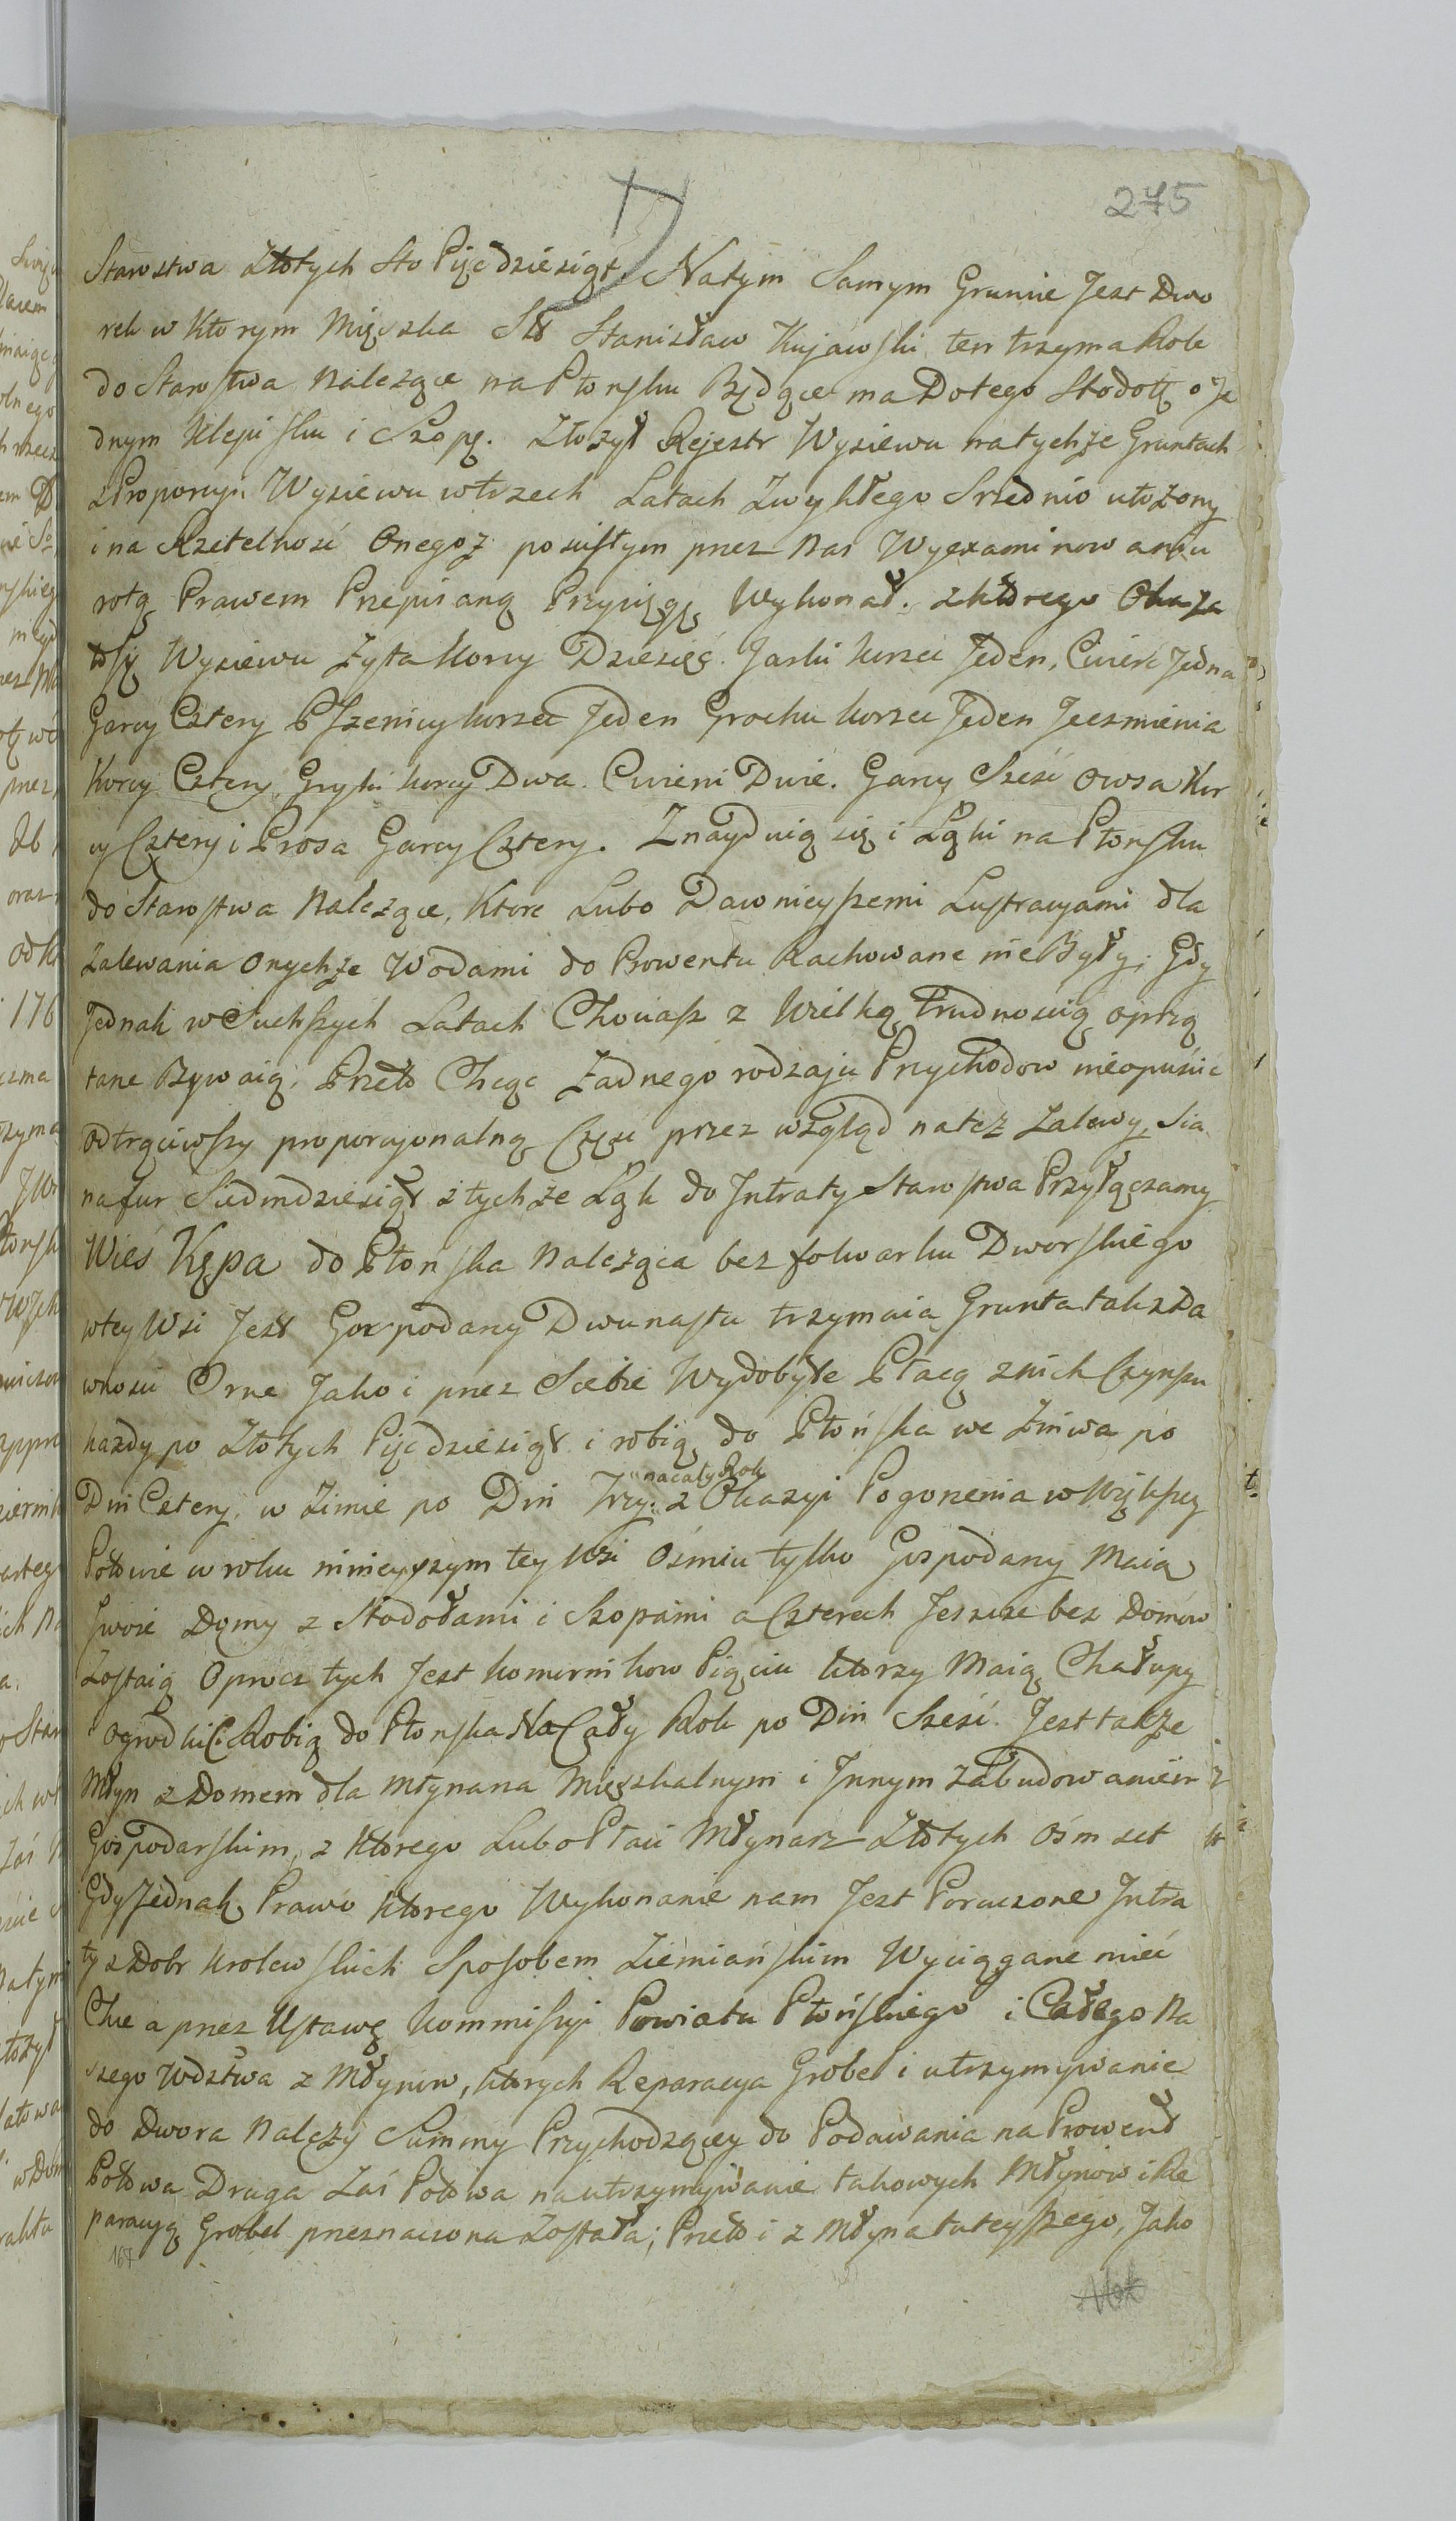 275
Starostwa Złotych Sto Pięćdziesiąt. Natym Samym Gruncie Jest Dwo
rek w Ktorym Mięszka Stanisław Kujawski ten trzyma Role
do Starostwa Należące na Płonsku Będące ma Dotego Stodołę o Je
dnym Klepisku i Szopę. Złożył Rejestr Wysiewu natychże Gruntach
z Proporcyi Wysiewu wtrzech Latach Zwykłego Srzednio ułożony
i na Rzetelność Onegoż poscisłym przez nas Wyexaminowaniu
rotą Prawem Przepisaną Przysięgę Wykonał. z którego Okaza
ło się Wysiewu Żyta Korcy Dziesięć. Jarki korzec Jeden, Cwierć Jedna
Garcy Cztery Pszenicy korzec Jeden Grochu korzec Jeden Jęczmienia
Korcy Cztery, Gryki korcy Dwa. Cwierci Dwie. Garcy Sześć Owsa Kor
cy Cztery i Prosa Garcy Cztery. Znayduią się i Łąki na Płonsku
do Starostwa Należące, Ktore Lubo Dawnieyszemi Lustracyami dla
Zalewania Onychże Wodami do Prowentu Rachowane nie Były; Gdy
Jednak w Suchszych Latach Chociasz z Wielką trudnością oprzą
tane Bywaią; Przeto Chcąc Żadnego rodzaju Przychodow nieopuścić
odtrąciwszy proporcyonalną Część przez wzgląd nateż Zalewy, Sia
na fur Siedmdziesiąt z tychże Łąk do Intraty Starostwa Przyłączamy
Wieś Kępa do Płońska Należąca bez folwarku Dworskiego
wtey Wsi Jest Gospodarzy Dwunastu trzymaią Grunta tak zDa
wności Orne Jako i przez Siebie Wydobyte Płacą znich Czynszu
każdy po Złotych Pięćdziesiąt i robią do Płońska we Żniwa po
Dni Cztery, w Zimie po Dni Trzy. na cały Rok z Okazyi Pogorzenia w Większey
Połowie w roku ninieyszym tey Wsi Ośmiu tylko Gospodarzy Maią
swoie Domy z Stodołami i Szopami a Czterech Jeszcze bez Domow
Zostaią Oprocz tych Jest komornikow Pięciu ktorzy Maią Chałupy
Ogrodki i Robią do Płonska Na Cały Rok po Dni Sześć. Jest także
Młyn z Domem dla Młynarza Mięszkalnym i Innym zabudowaniem
Gospodarskim, z ktorego Lubo Płaci Młynarz Złotych Ośm set
Gdy Jednak Prawo ktorego Wykonanie nam Jest Poruczone Intra
ty z Dobr Krolewskich Sposobem Ziemiańskim Wyciągane mieć
Chce a przez Ustawę Kommissyi Powiatu Płońskiego i Całego Na
szego Wdztwa z Młynow, ktorych Reparacya Grobel i utrzymywanie
do Dwora Należy Summy Przychodzącey do Podawania na Prowent
Połowa Druga Zaś Połowa na utrzymywanie takowych Młynow i Re
paracyą Grobel przeznaczona Została; Przeto i z Młyna tuteyszego, Jako
167